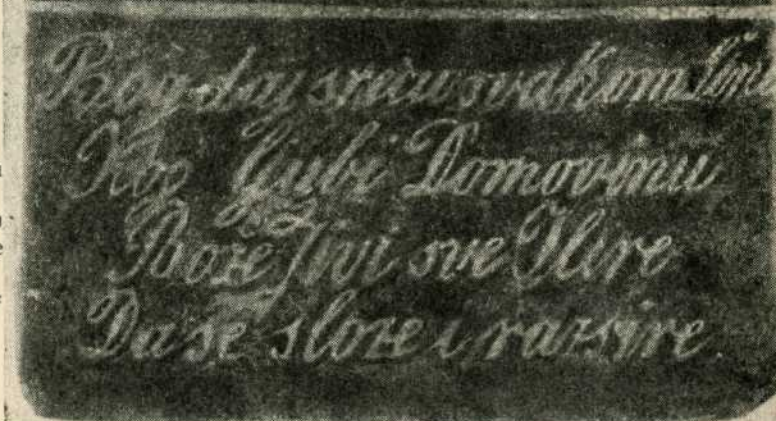 Bog daj sreću svakom
Koj Gjubi Domovinu
Boze Jivi sve Ilire
Da se sloze i razsire